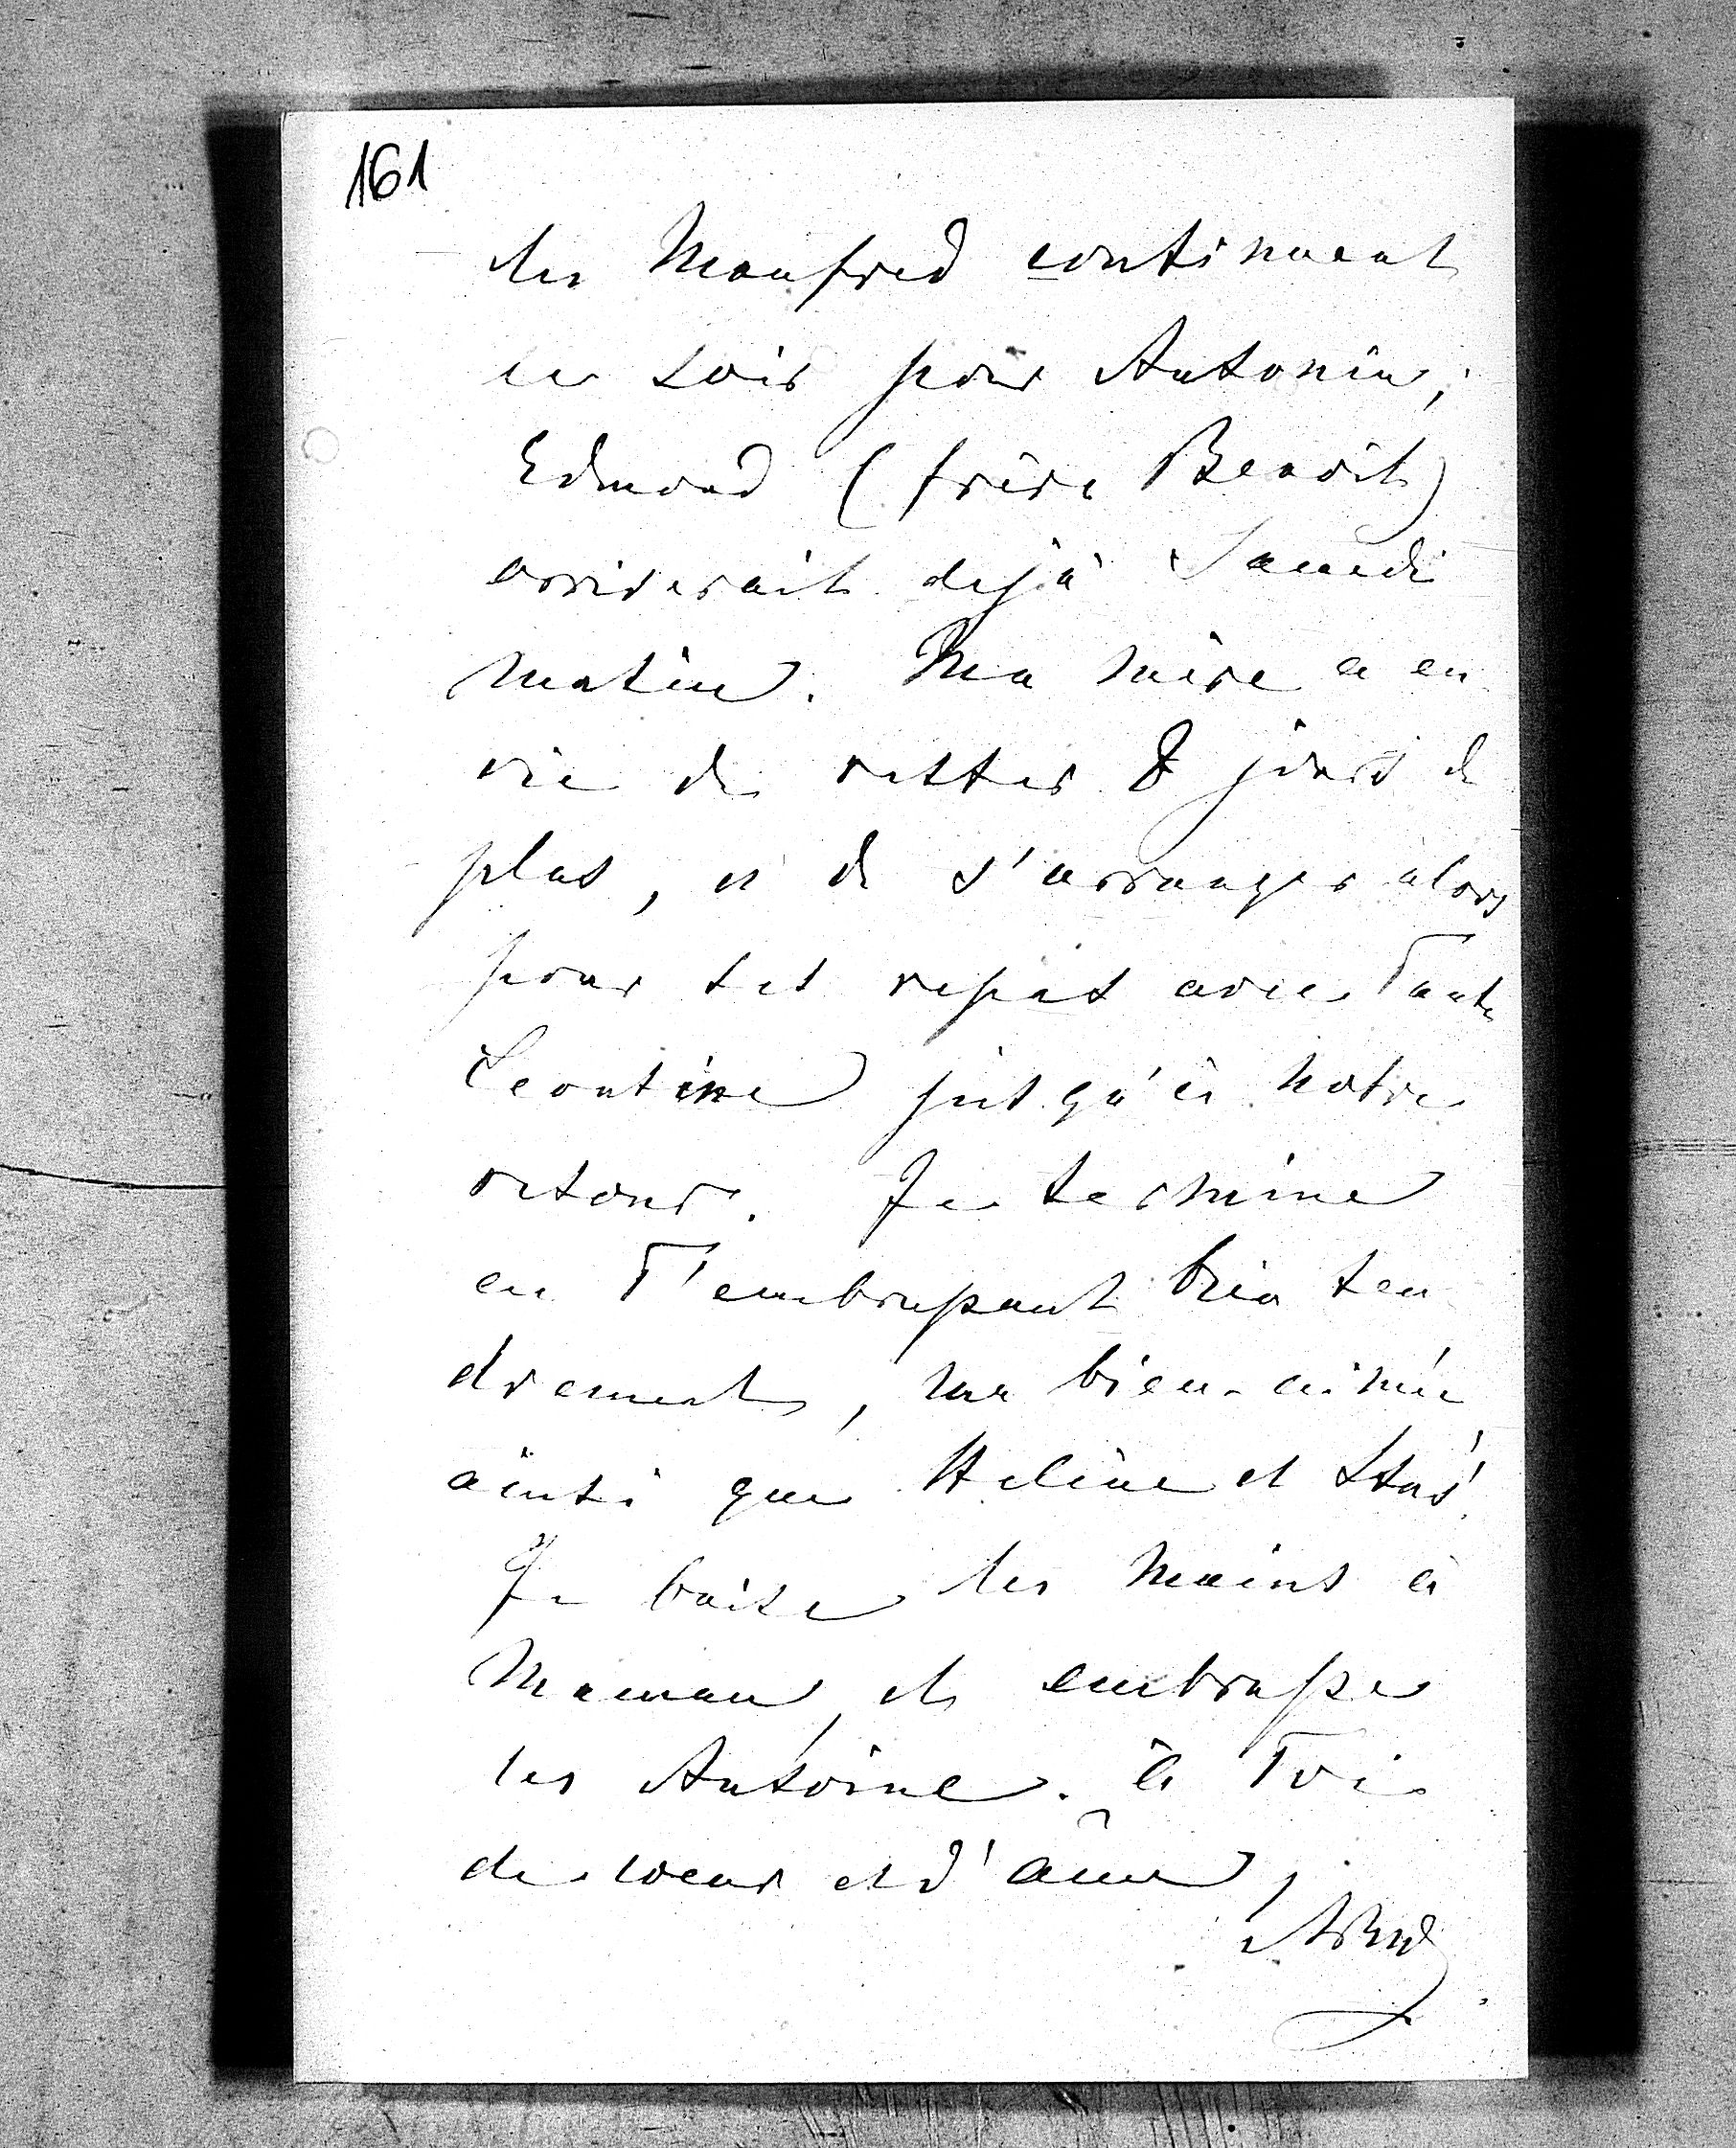 161
les Manfred continuent
ce soir pour Antonin;
Edmond (frère Benoit)
arriverait dejà Samedi
matin. Ma mère a en
vie de rester 8 jours de
plus, et de s'arranger alors
pour ses repas avec Tante
Leontine jusqu'à notre
retour. Je termine
en T'embrassant bien ten
drement, ma bien-aimée,
ainsi que Helène et Stas!
Je baise les mains à
Maman, et embrasse
les Antoine. à Toi
de coeur et d'âme,